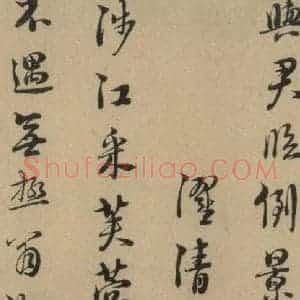 與君臨倒景
澄清
涉江采芙蓉
不遇無極翁
Shufaziliao.com